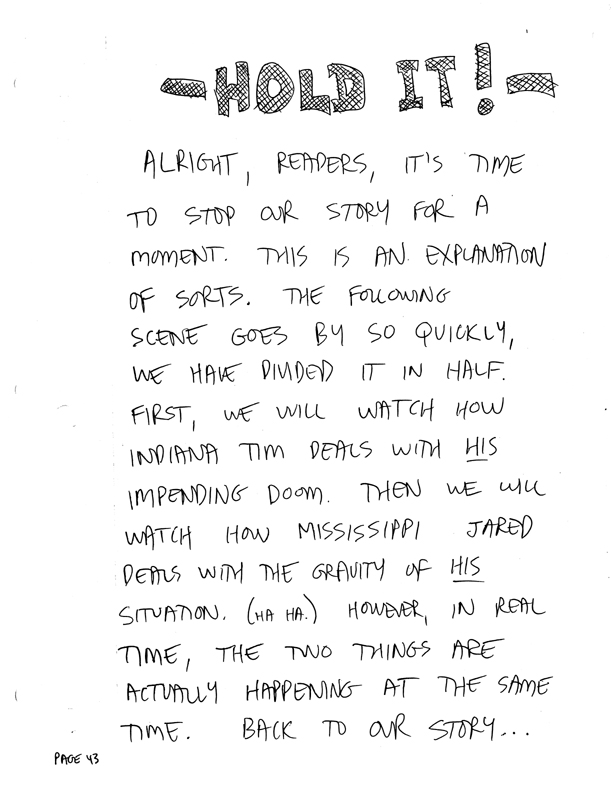 -HOLD IT!-
ALRIGHT, READERS, IT'S TIME
TO STOP OUR STORY FOR A
MOMENT. THIS IS AN EXPLANATION
OF SORTS. THE FOLLOWING
SCENE GOES BY SO QUICKLY,
WE HAVE DIVIDED IT IN HALF.
FIRST, WE WILL WATCH HOW
INDIANA TIM DEALS WITH HIS
IMPENDING DOOM. THEN WE WILL
WATCH HOW MISSISSIPPI JARED
DEALS WITH THE GRAVITY OF HIS
SITUATION. (HA HA.) HOWEVER, IN REAL
TIME, THE TWO THINGS ARE
ACTUALLY HAPPENING AT THE SAME
TIME. BACK TO OUR STORY...
PAGE 43